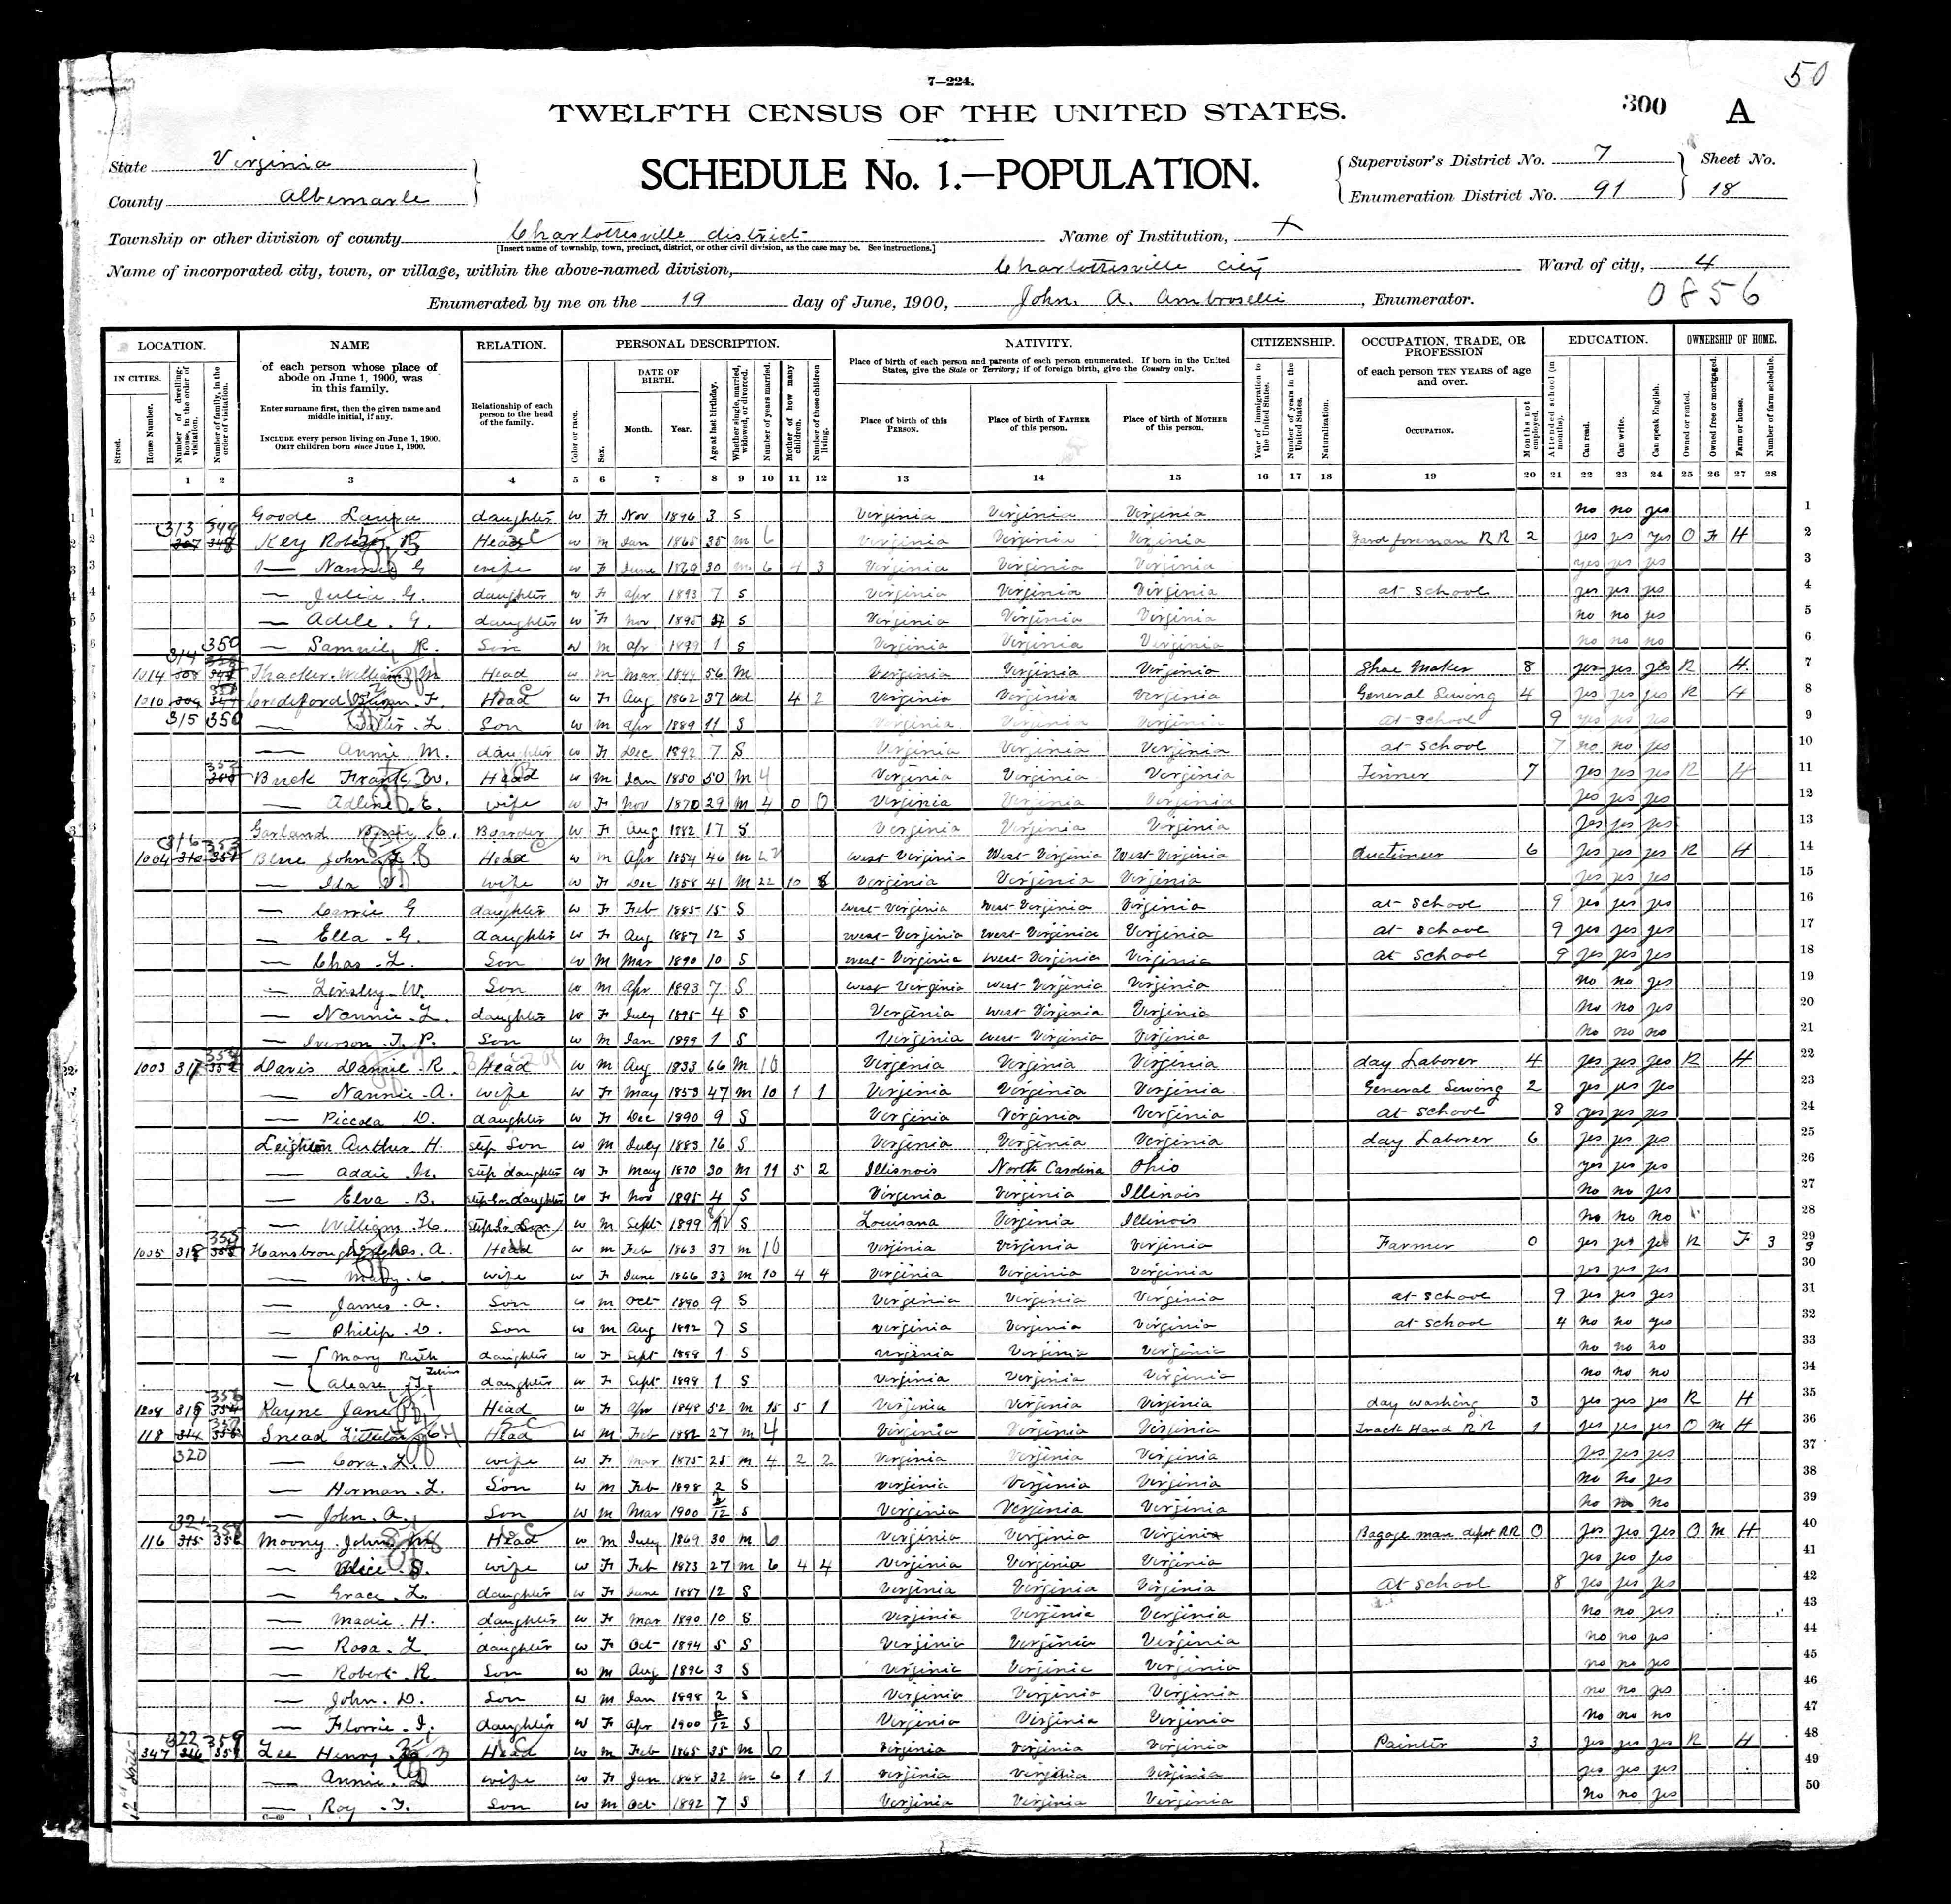 50
7—224.
TWELFTH CENSUS OF THE UNITED STATES.
300 A
State Virginia
County Albemarle
SCHEDULE No. 1.—POPULATION.
Supervisor's District No. 7
Enumeration District No. 91
Sheet No.
18
Township or other division of county Charlottesville district
[Insert name of township, town, precinct, district, or other civil division, as the case may be. See instructions.]
Name of Institution, X
Name of incorporated city, town, or village, within the above-named division, Charlottesville city
Ward of city, 4
Enumerated by me on the 19 day of June, 1900, John. A. Ambroselli, Enumerator.
0856
LOCATION. NAME RELATION. PERSONAL DESCRIPTION. NATIVITY. CITIZENSHIP. OCCUPATION, TRADE, OR PROFESSION EDUCATION. OWNERSHIP OF HOME.
IN CITIES.
Street.
House Number.
Number of dwelling-house, in the order of visitation.
Number of family, in the order of visitation.
of each person whose place of abode on June 1, 1900, was in this family.
Enter surname first, then the given name and middle initial, if any.
INCLUDE every person living on June 1, 1900.
OMIT children born since June 1, 1900.
Relationship of each person to the head of the family.
Color or race.
Sex.
DATE OF BIRTH.
Month. Year.
Age at last birthday.
Whether single, married, widowed, or divorced.
Number of years married.
Mother of how many children.
Number of these children living.
Place of birth of each person and parents of each person enumerated. If born in the United States, give the State or Territory; if of foreign birth, give the Country only.
Place of birth of this PERSON.
Place of birth of FATHER of this person.
Place of birth of MOTHER of this person.
Year of immigration to the United States.
Number of years in the United States.
Naturalization.
of each person TEN YEARS of age and over.
OCCUPATION.
Months not employed.
Attended school (in months).
Can read.
Can write.
Can speak English.
Owned or rented.
Owned free or mortgaged.
Farm or house.
Number of farm schedule.
1 2 3 4 5 6 7 8 9 10 11 12 13 14 15 16 17 18 19 20 21 22 23 24 25 26 27 28
1 Goode daughter W F Nov 1896 3 S Virginia Virginia Virginia no no yes 1
2 313 349 Key Head W M Jan 1865 35 M 6 Virginia Virginia Virginia foreman RR 2 yes yes yes O F H 2
3 — Nannie G wife W F June 1869 30 M 6 4 3 Virginia Virginia Virginia yes yes yes 3
4 — Julia. G. daughter W F Apr 1893 7 S Virginia Virginia Virginia at school yes yes yes 4
5 — Adele. G. daughter W F Nov S Virginia Virginia Virginia no no yes 5
6 350 — R. Son W M Apr 1899 1 S Virginia Virginia Virginia no no no 6
7 1014 314 Thacker William M Head W M Mar 1844 56 M Virginia Virginia Virginia Shoe Maker 8 yes yes yes R H 7
8 1010 Crediford F. Head W F Aug 1862 37 Wd 4 2 Virginia Virginia Virginia General Sewing 4 yes yes yes R H 8
9 315 350 — L. Son W M Apr 1889 11 S Virginia Virginia Virginia at school 9 yes yes yes 9
— Annie M. daughter W F Dec 1892 7 S Virginia Virginia Virginia at school 7 no no yes 10
Buck Frank W. Head W M Jan 1850 50 M 4 Virginia Virginia Virginia Tinner 7 yes yes yes R H 11
— Adline E. wife W F Nov 1870 29 M 4 0 0 Virginia Virginia Virginia yes yes yes 12
Garland E. Boarder W F Aug 1882 17 S Virginia Virginia Virginia yes yes yes 13
1004 316 353 Blue John Head W M Apr 1854 46 M 22 West Virginia West Virginia West Virginia Auctioneer 6 yes yes yes R H 14
— Ida V. wife W F Dec 1858 41 M 22 10 Virginia Virginia Virginia yes yes yes 15
— Carrie G daughter W F Feb 1885 15 S West Virginia West Virginia Virginia at school 9 yes yes yes 16
— Ella G. daughter W F Aug 1887 12 S West Virginia West Virginia Virginia at school 9 yes yes yes 17
— Chas. L. Son W M Mar 1890 10 S West Virginia West Virginia Virginia at school 9 yes yes yes 18
— Linsley W. Son W M Apr 1893 7 S West Virginia West Virginia Virginia no no yes 19
— Nannie. L. daughter W F July 1895 4 S Virginia West Virginia Virginia no no yes 20
— Iverson. T. P. Son W M Jan 1899 1 S Virginia West Virginia Virginia no no no 21
1003 317 354 Davis Dannie. R. Head W M Aug 1833 66 M 10 Virginia Virginia Virginia day Laborer 4 yes yes yes R H 22
— Nannie. A. wife W F May 1853 47 M 10 1 1 Virginia Virginia Virginia General Sewing 2 yes yes yes 23
— Piccola D. daughter W F Dec 1890 9 S Virginia Virginia Virginia at school 8 yes yes yes 24
Leighton Arther H. Step Son W M July 1883 16 S Virginia Virginia Virginia day Laborer 6 yes yes yes 25
— Addie. M. Step daughter W F May 1870 30 M 11 5 2 Illisnois North Carolina Ohio yes yes yes 26
— Elva. B. W F Nov 1895 4 S Virginia Virginia Illinois no no yes 27
— William H. W M Sept 1899 S Louisana Virginia Illinois no no no 28
1005 318 355 Hansbrough Chas. A. Head W M Feb 1863 37 M 10 Virginia Virginia Virginia Farmer 0 yes yes yes R F 3 29
— Mary. C. wife W F June 1866 33 M 10 4 4 Virginia Virginia Virginia yes yes yes 30
— James. A. Son W M Oct 1890 9 S Virginia Virginia Virginia at school 9 yes yes yes 31
— Philip. D. Son W M Aug 1892 7 S Virginia Virginia Virginia at school 4 no no yes 32
— Mary Ruth daughter W F Sept 1898 1 S Virginia Virginia Virginia no no no 33
— Alease daughter W F Sept 1898 1 S Virginia Virginia Virginia no no no 34
1208 319 356 Rayne Jane Head W F Apr 1848 52 M 15 5 1 Virginia Virginia Virginia day washing 3 yes yes yes R H 35
118 357 Snead Head W M Feb 27 M 4 Virginia Virginia Virginia Track Hand RR 1 yes yes yes O M H 36
320 — Cora. L. wife W F Mar 1875 25 M 4 2 2 Virginia Virginia Virginia yes yes yes 37
— Herman. L. Son W M Feb 1898 2 S Virginia Virginia Virginia no no yes 38
— John. A. Son W M Mar 1900 2/12 S Virginia Virginia Virginia no no no 39
116 321 358 Moony John M Head W M July 1869 30 M 6 Virginia Virginia Virginia Bagage man depot RR 0 yes yes yes O M H 40
— Alice S. wife W F Feb 1873 27 M 6 4 4 Virginia Virginia Virginia yes yes yes 41
— Grace. L. daughter W F June 1887 12 S Virginia Virginia Virginia at school 8 yes yes yes 42
— Madie H. daughter W F Mar 1890 10 S Virginia Virginia Virginia no no yes 43
— Rosa. L daughter W F Oct 1894 5 S Virginia Virginia Virginia no no yes 44
— Robert. R. Son W M Aug 1896 3 S Virginia Virginia Virginia no no yes 45
— John. D. Son W M Jan 1898 2 S Virginia Virginia Virginia no no yes 46
— Florrie. I. daughter W F Apr 1900 2/12 S Virginia Virginia Virginia no no no 47
347 322 359 Lee Henry Head W M Feb 1865 35 M 6 Virginia Virginia Virginia Painter 3 yes yes yes R H 48
— Annie wife W F Jan 1868 32 M 6 1 1 Virginia Virginia Virginia yes yes yes 49
— Roy. T. Son W M Oct 1892 7 S Virginia Virginia Virginia no no yes 50